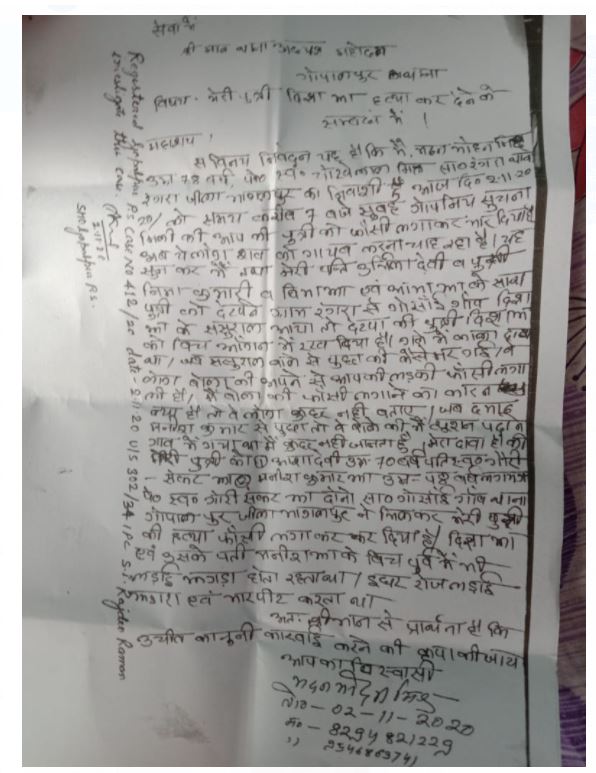 सेवा में
श्री मान थाना अध्यक्ष महोदय
गोपालपुर थाना
विषय- मेरी पुत्री दिशा झा हत्या कर देने के
सम्बंध में ।
महाशय,
सविनय निवेदन यह है कि मैं, मदन मोहन मिश्र
उम्र 72 वर्ष, पे० स्व० मिश्र सा० रंगरा थाना
रंगरा जीला भागलपुर का निवासी हूँ आज दि० 2-11-20
20/ को समय करीब 7 बजे सुबह गोपनिय सुचना
मिली की आप की पुत्री को फाँसी लगाकर मार दिया है
अब ये लोग शव को गायब करना चाह रहा है। यह
सुन कर मैं तथा मेरी पत्नि देवी व पुत्री
कुमारी व झा के साथ
पुत्री को देखने ग्राम रंगरा से गोसाई गाँव दिशा
झा के ससुराल आया तो देखा की पुत्री दिशा झा
को बिच आंगन में रख दिया है। गले में काला दाग
था, जब ससुराल वाले से पुछा की कैसे मर गई, वे
लोग बोला की अपने से आपकी लड़की फाँसी लगा
ली है, मैं बोला की फाँसी लगाने का कारन
क्या है तो वे लोग कुछ नहीं बताए, जब दामाद
मनीश कुमार से पुछा तो वे बोले की मैं ट्युशन पढ़ाने
गाँव में गया था मैं कुछ नहीं जानता हूँ, मेरा दावा है की
मेरी पुत्री को ① आशा देवी उम्र 70 वर्ष पति स्व० गौरी
संकर झा मनीश कुमार झा उम्र- वर्ष लगभग
पे० स्व० गोरी संकर झा दोनो सा० गोसाई गाँव थाना
गोपालपुर जीला भागलपुर ने मिलकर मेरी पुत्री
की हत्या फाँसी लगा कर कर दिया है। दिशा झा
एवं उसके पती मनीश झा के बिच पूर्व में भी
लड़ाई झगड़ा होता रहता था। इधर रोज लड़ाई
झगरा एवं मारपीट करता था
अतः श्रीमान से प्रार्थना है कि
उचीत कानुनी कारवाई करने की कृपा की जाय
आपका विस्वासी
मदन मोहन मिश्र
दि०- 02-11-2020
मो०- 8294821229
" 9546863741
Registered Gopalpur P.S Case No 412/20 date- 2-11-20 U/S 302/34 IPC S.I. Rajdeo Raman
investigate this case.
2-11-20
SHO Gopalpur P.S.